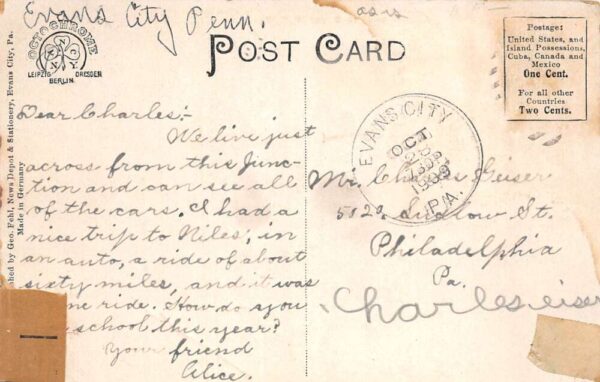 Evans City Penn.
as is
OCTOCHROME
N C
N Y
LEIPZIG DRESDEN
BERLIN
POST CARD
Postage:
United States, and
Island Possessions,
Cuba, Canada and
Mexico
One Cent.
For all other
Countries
Two Cents.
shed by Geo. Fehl, News Depot & Stationery, Evans City, Pa.
Made in Germany
EVANS CITY
OCT
20
730P
1909
PA.
Dear Charles:-
We live just
across from this Junc-
tion and can see all
of the cars. I had a
nice trip to Niles, in
an auto, a ride of about
sixty miles, and it was
ne ride. How do you
school this year?
Your friend
Alice.
Mr. Charles Geiser
Ludlow St.
Philadelphia
Pa.
Charles Geiser